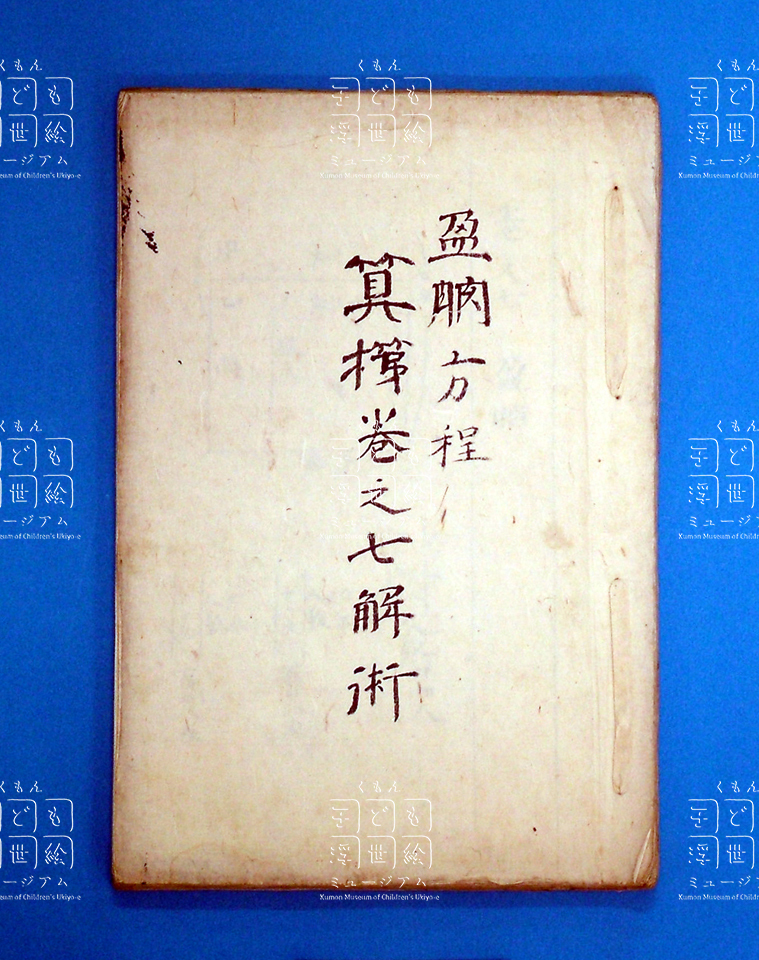 盈朒方程
算 巻之七解術
くもん
子ども
浮世絵
ミュージアム
Kumon Museum of Children's Ukiyo-e